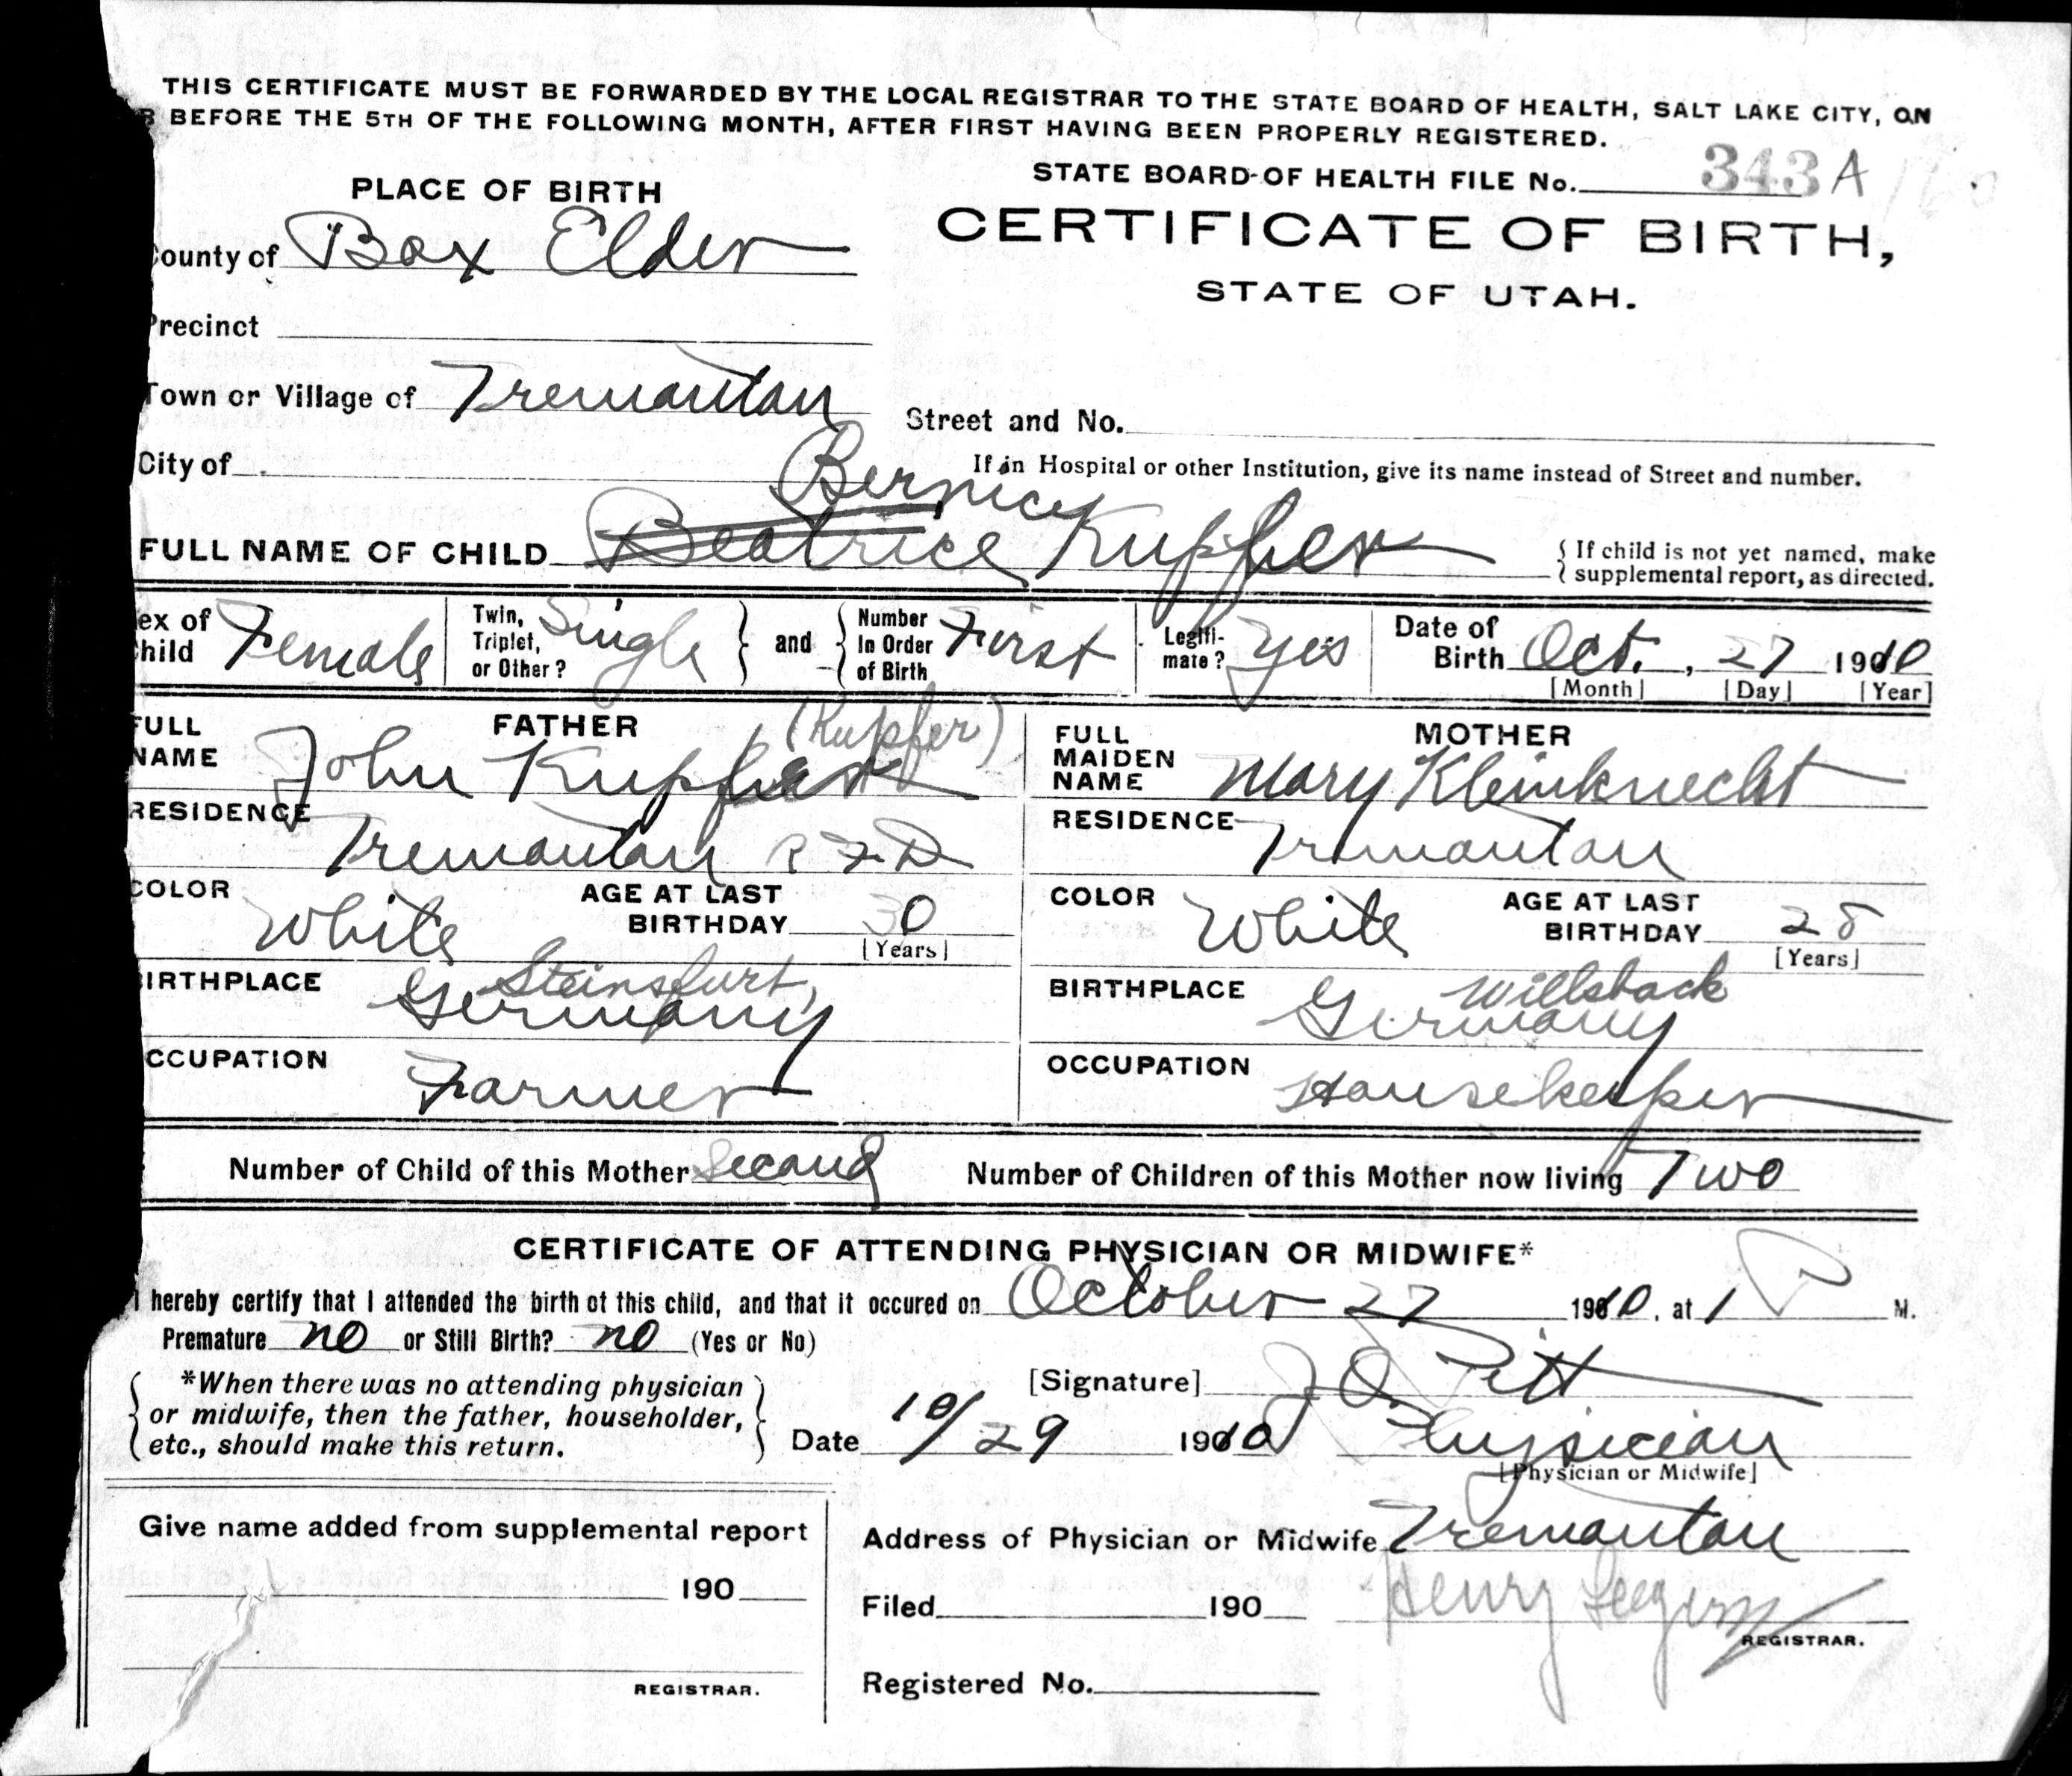 THIS CERTIFICATE MUST BE FORWARDED BY THE LOCAL REGISTRAR TO THE STATE BOARD OF HEALTH, SALT LAKE CITY, ON
R BEFORE THE 5TH OF THE FOLLOWING MONTH, AFTER FIRST HAVING BEEN PROPERLY REGISTERED.
STATE BOARD OF HEALTH FILE No. 343 A
PLACE OF BIRTH
CERTIFICATE OF BIRTH,
STATE OF UTAH.
County of Box Elder
Precinct
Town or Village of Tremonton
Street and No.
City of
If in Hospital or other Institution, give its name instead of Street and number.
Bernice
FULL NAME OF CHILD Beatrice Kupfer
{ If child is not yet named, make
{ supplemental report, as directed.
ex of Child Female
Twin, Triplet, or Other? Single } and { Number In Order of Birth First
Legiti-mate? Yes
Date of Birth Oct. , 27 1910
[Month] [Day] [Year]
FATHER
FULL NAME John Kupfer (Kupfer)
MOTHER
FULL MAIDEN NAME Mary Kleinknecht
RESIDENCE Tremonton R F D
RESIDENCE Tremonton
COLOR White AGE AT LAST BIRTHDAY 30 [Years]
COLOR White AGE AT LAST BIRTHDAY 28 [Years]
BIRTHPLACE Steinsfurt, Germany
BIRTHPLACE Willsback Germany
OCCUPATION Farmer
OCCUPATION Housekeeper
Number of Child of this Mother Second Number of Children of this Mother now living Two
CERTIFICATE OF ATTENDING PHYSICIAN OR MIDWIFE*
I hereby certify that I attended the birth of this child, and that it occured on October 27 1910, at 1 P M.
Premature no or Still Birth? no (Yes or No)
*When there was no attending physician
or midwife, then the father, householder,
etc., should make this return.
[Signature] Pitt
Date 10/29 1910 Physician
[Physician or Midwife]
Give name added from supplemental report
190
REGISTRAR.
Address of Physician or Midwife Tremonton
Filed 190 Henry
REGISTRAR.
Registered No.